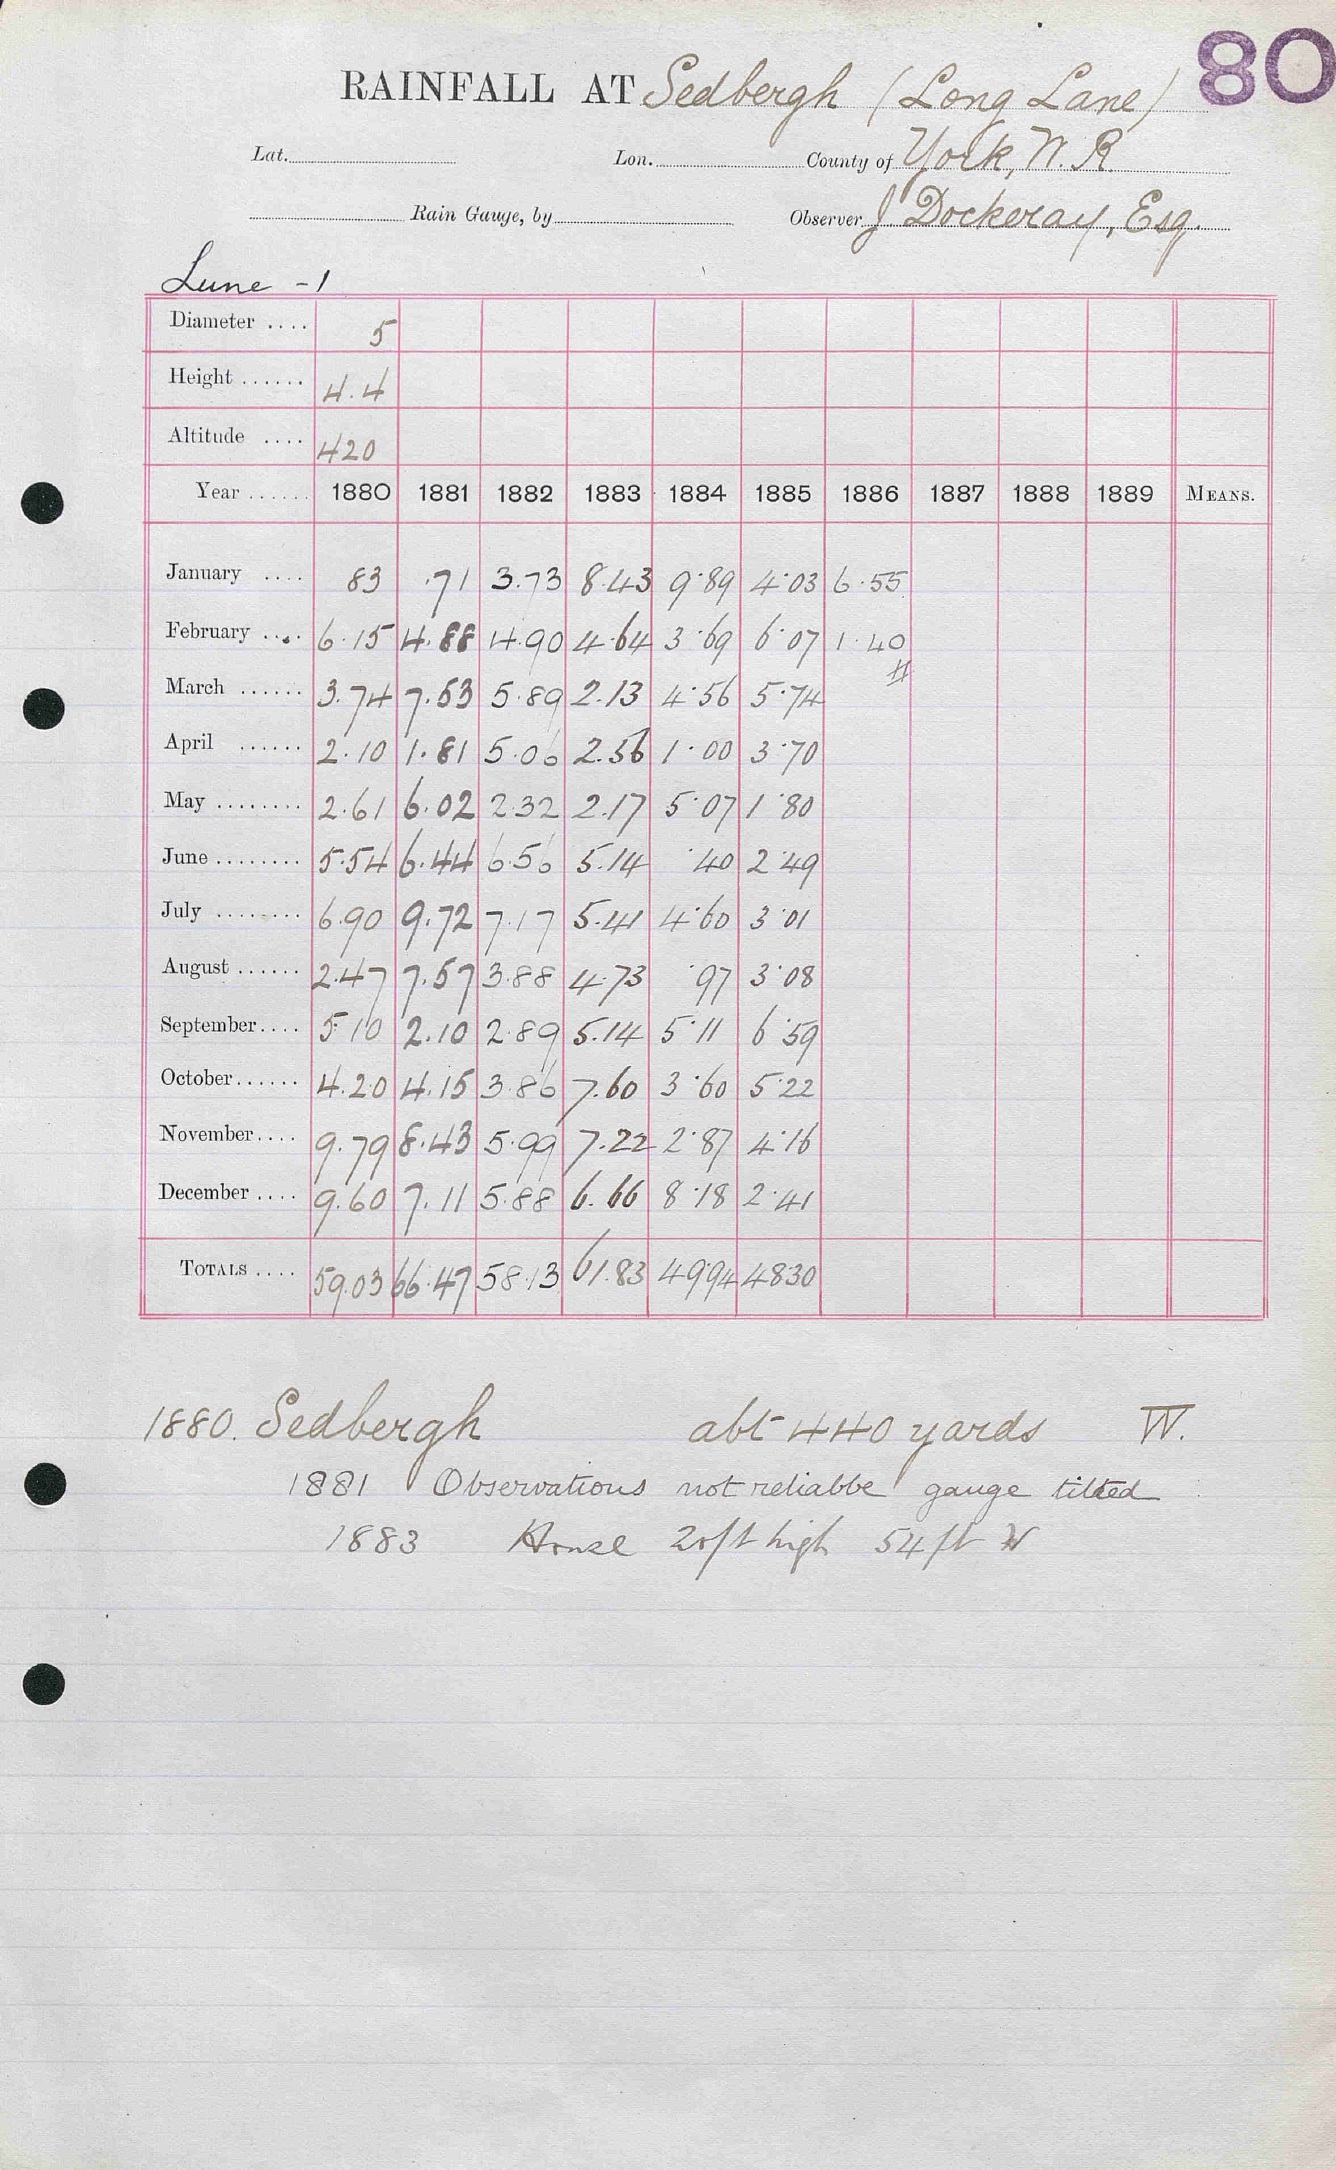 80
RAINFALL AT Sedbergh (Long Lane)
Lat. Lon. County of York, W. R.
Rain Gauge, by Observer J. Dockeray, Esq.
Lune - 1
Diameter .... 5
Height ...... 4.4
Altitude .... 420
Year ...... 1880 1881 1882 1883 1884 1885 1886 1887 1888 1889 MEANS.
January .... 83 .71 3.73 8.43 9.89 4.03 6.55
February .... 6.15 4.88 4.90 4.64 3.69 6.07 1.40
March ...... 3.74 7.53 5.89 2.13 4.56 5.74 #
April ...... 2.10 1.81 5.06 2.56 1.00 3.70
May ........ 2.61 6.02 2.32 2.17 5.07 1.80
June ........ 5.54 6.44 6.56 5.14 .40 2.49
July ........ 6.90 9.72 7.17 5.41 4.60 3.01
August ...... 2.47 7.57 3.88 4.73 .97 3.08
September.... 5.10 2.10 2.89 5.14 5.11 6.59
October...... 4.20 4.15 3.86 7.60 3.60 5.22
November.... 9.79 8.43 5.99 7.22 2.87 4.16
December .... 9.60 7.11 5.88 6.66 8.18 2.41
TOTALS .... 59.03 66.47 58.13 61.83 49.94 48.30
1880. Sedbergh abt 440 yards W.
1881 Observations not reliable gauge tilted
1883 House 20ft high 54 ft W